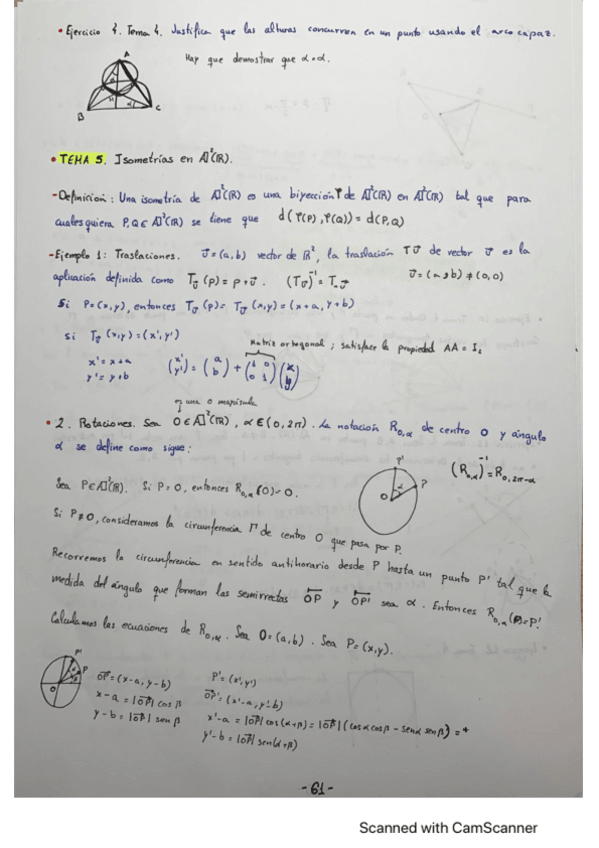 • Ejercicio 4. Tema 4. Justifica que las alturas concurren en un punto usando el arco capaz.
Hay que demostrar que α=α.
A
B
H
α
C
• TEMA 5. Isometrías en A²(R).
- Definición: Una isometría de A²(R) es una biyección φ de A²(R) en A²(R) tal que para
cualesquiera P,Q ∈ A²(R) se tiene que d(φ(P),φ(Q)) = d(P,Q)
- Ejemplo 1: Traslaciones. v⃗=(a,b) vector de R², la traslación Tv⃗ de vector v⃗ es la
aplicación definida como Tv⃗(p)=p+v⃗. (Tv⃗)⁻¹=T-v⃗ v⃗=(a,b)≠(0,0)
Si P=(x,y), entonces Tv⃗(p)= Tv⃗(x,y)=(x+a,y+b)
si Tv⃗(x,y)=(x',y') Matriz ortogonal; satisface la propiedad AA=I₂
x'=x+a
y'=y+b
(x' y') = (a b) + (1 0 0 1)(x y)
es una O mayúscula
• 2. Rotaciones. Sea O∈A²(R), α∈(0,2π). La notación R₀,α de centro O y ángulo
α se define como sigue:
P'
P
O
α
(R₀,α)⁻¹=R₀,2π-α
Sea P∈A²(R). Si P=O, entonces R₀,α(O)=O.
Si P≠O, consideramos la circunferencia Γ de centro O que pasa por P.
Recorremos la circunferencia en sentido antihorario desde P hasta un punto P' tal que la
medida del ángulo que forman las semirrectas OP y OP' sea α. Entonces R₀,α(P)=P'.
Calculamos las ecuaciones de R₀,α. Sea O=(a,b). Sea P=(x,y).
P'
P
O
OP⃗=(x-a,y-b)
x-a=|OP⃗|cosβ
y-b=|OP⃗|senβ
P'=(x',y')
OP⃗'=(x'-a,y'-b)
x'-a=|OP⃗|cos(α+β)=|OP⃗|(cosαcosβ-senαsenβ)=*
y'-b=|OP⃗|sen(α+β)
-61-
Scanned with CamScanner